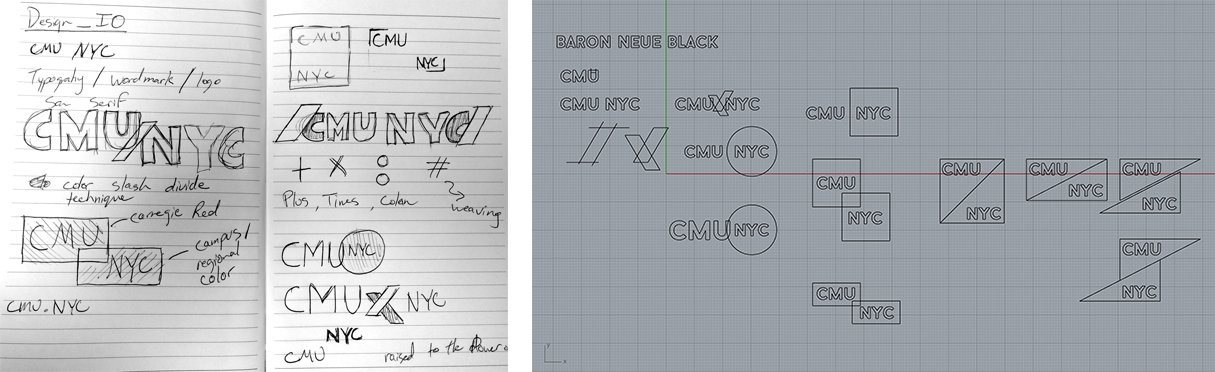 Design_IO
CMU NYC
Typograhy / wordmark / logo
San Serif
CMU/NYC
color slash divide
technique
carnegie Red
CMU
NYC
campus/
regional
color
CMU.NYC
CMU
NYC
CMU
NYC
/CMU NYC/
+ X 8 #
Plus, Times, Colon
weaving
CMU NYC
CMU X NYC
NYC
CMU
raised to the Power o
BARON NEUE BLACK
CMU
CMU NYC
CMUXNYC
CMU NYC
CMU NYC
CMU NYC
CMU
NYC
CMU
NYC
CMU
NYC
CMU
NYC
CMU
NYC
CMU
NYC
y
x